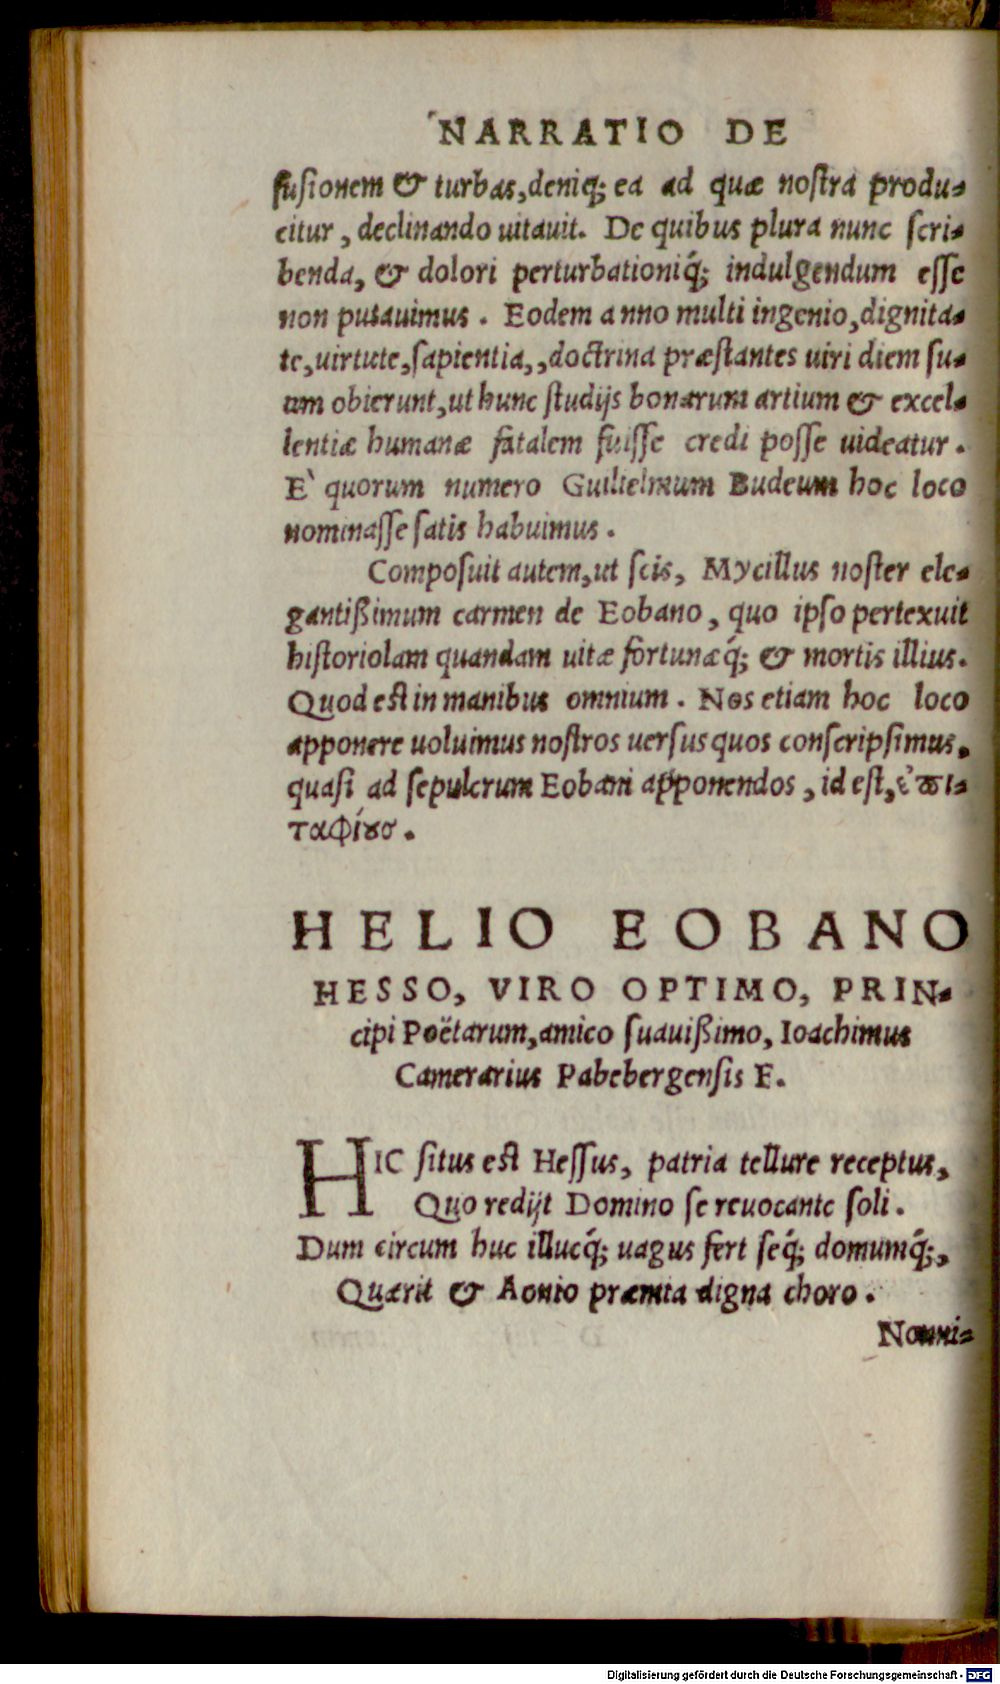 NARRATIO DE
fusionem & turbas, deniq́; ea ad quæ nostra produ-
citur, declinando uitauit. De quibus plura nunc scri-
benda, & dolori perturbationiq́; indulgendum esse
non putauimus. Eodem anno multi ingenio, dignita-
te, uirtute, sapientia,, doctrina præstantes uiri diem su-
um obierunt, ut hunc studijs bonarum artium & excel-
lentiæ humanæ fatalem fuisse credi posse uideatur.
E` quorum numero Guilielmum Budeum hoc loco
nominasse satis habuimus.
Composuit autem, ut scis, Mycillus noster ele-
gantißimum carmen de Eobano, quo ipso pertexuit
historiolam quandam uitæ fortunæq́; & mortis illius.
Quod est in manibus omnium. Nos etiam hoc loco
apponere uoluimus nostros uersus quos conscripsimus,
quasi ad sepulcrum Eobani apponendos, id est, ἐπι-
ταφίους.
HELIO EOBANO
HESSO, VIRO OPTIMO, PRIN-
cipi Poëtarum, amico suauißimo, Ioachimus
Camerarius Pabebergensis F.
HIC situs est Hessus, patria tellure receptus,
Quo redijt Domino se reuocante soli.
Dum circum huc illucq́; uagus fert seq́; domumq́;,
Quærit & Aonio præmia digna choro.
Nonni-
Digitalisierung gefördert durch die Deutsche Forschungsgemeinschaft - DFG